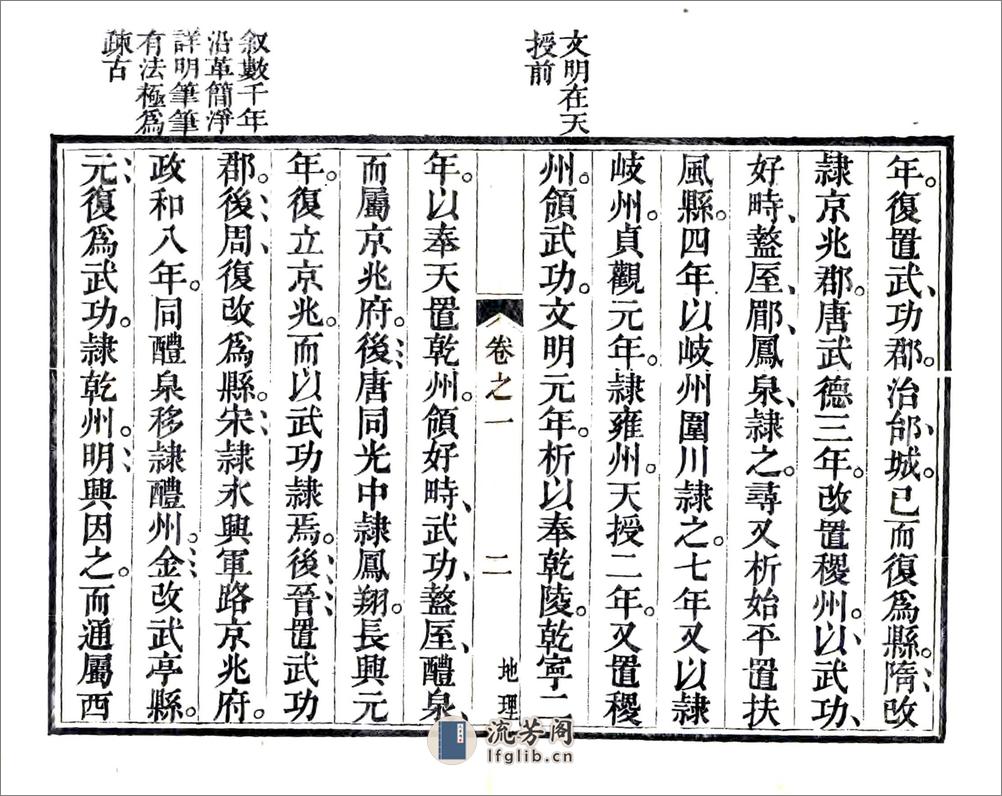 文明在天
授前
叙數千年
沿革簡淨
詳明筆筆
有法極爲
疎古
年。復置武、功郡。治邰、城。已而復爲縣。隋、改
隸京兆郡。唐武德三年。改置稷州。以武功、
好畤、盩厔、郿、鳳泉、隸之。尋又析始平置扶
風縣。四年以岐州圍川隸之。七年又以隸
岐州。貞觀元年。隸雍州。天授二年。又置稷
州。領武功。文明元年。析以奉乾陵。乾寧二
卷之一 二 地理
年。以奉天置乾州。領好畤、武功、盩厔、醴泉、
而屬京兆府。後、唐同光中隸鳳翔。長興元
年。復立京兆。而以武功隸焉。後、晉置武功
郡。後、周復改爲縣。宋、隸永興軍路京兆府。
政和八年。同醴泉移隸醴州。金、改武亭縣。
元、復爲武功。隸乾州。明、興因之。而通屬西
流芳阁
lfglib.cn